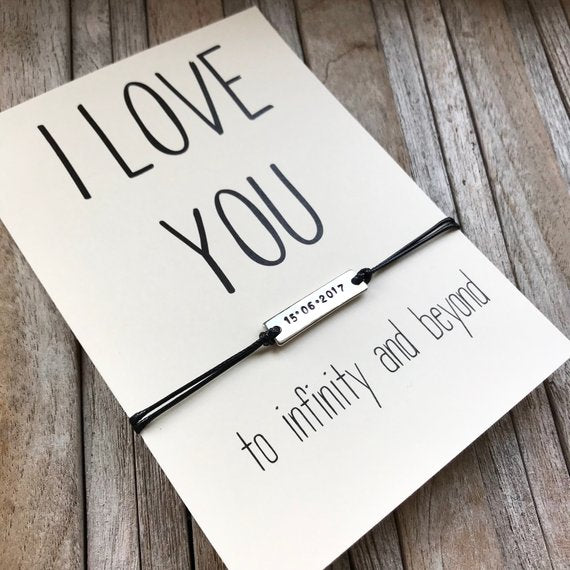 I LOVE
YOU
15•06•2017
to infinity and beyond